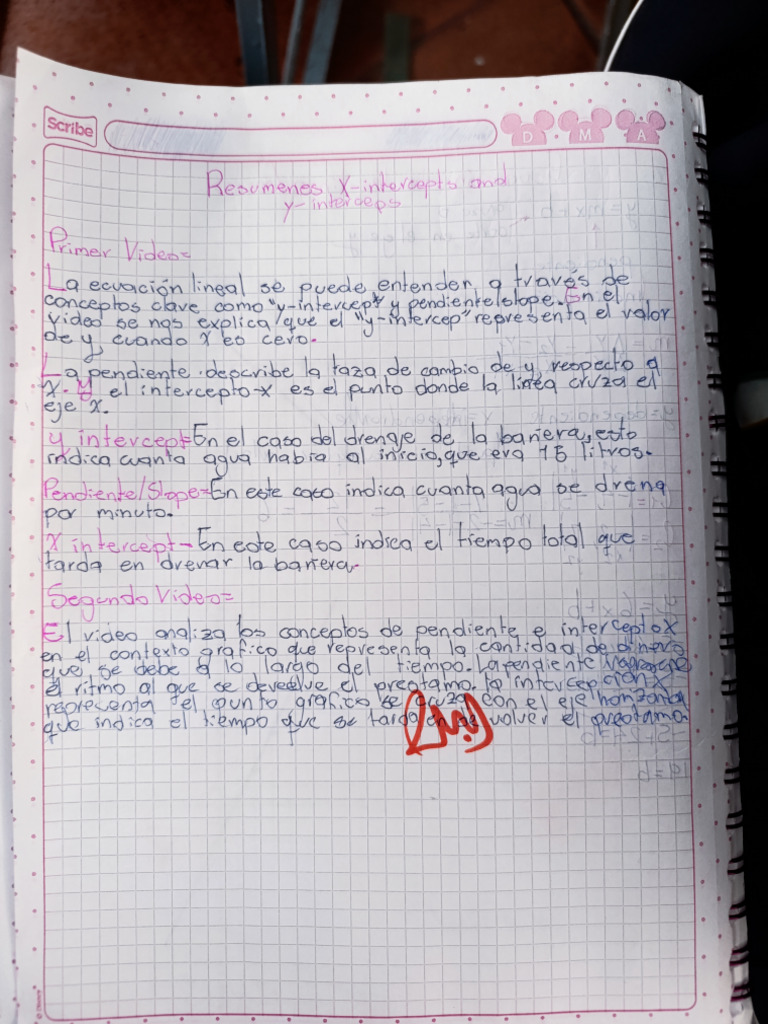 Scribe
D M A
Resumenes X-intercepts and
y-interceps
Primer Video=
La ecuación lineal se puede entender a través de
conceptos clave como "y-intercept" y pendiente/slope. En el
video se nos explica que el "y-intercep" representa el valor
de y, cuando x es cero.
La pendiente describe la taza de cambio de y, respecto a
x. Y el intercepto-x es el punto donde la linea cruza el
eje x.
y intercept=En el caso del drenge de la bañera, esto
indica cuanta agua habia al inicio, que era 15 litros.
Pendiente/Slope=En este caso indica cuanta agua se drena
por minuto.
X intercept-En este caso indica el tiempo total que
tarda en drenar la bañera.
Segundo Video=
El video analiza los conceptos de pendiente e intercepto X
en el contexto grafico que representa la cantidad de dinero
que se debe a lo largo del tiempo. La pendiente
el ritmo al que se devuelve el prestamo. la intercepción X
representa el punto grafico se cruza con el eje horizontal
que indica el tiempo que se tarda en de volver el prestamo